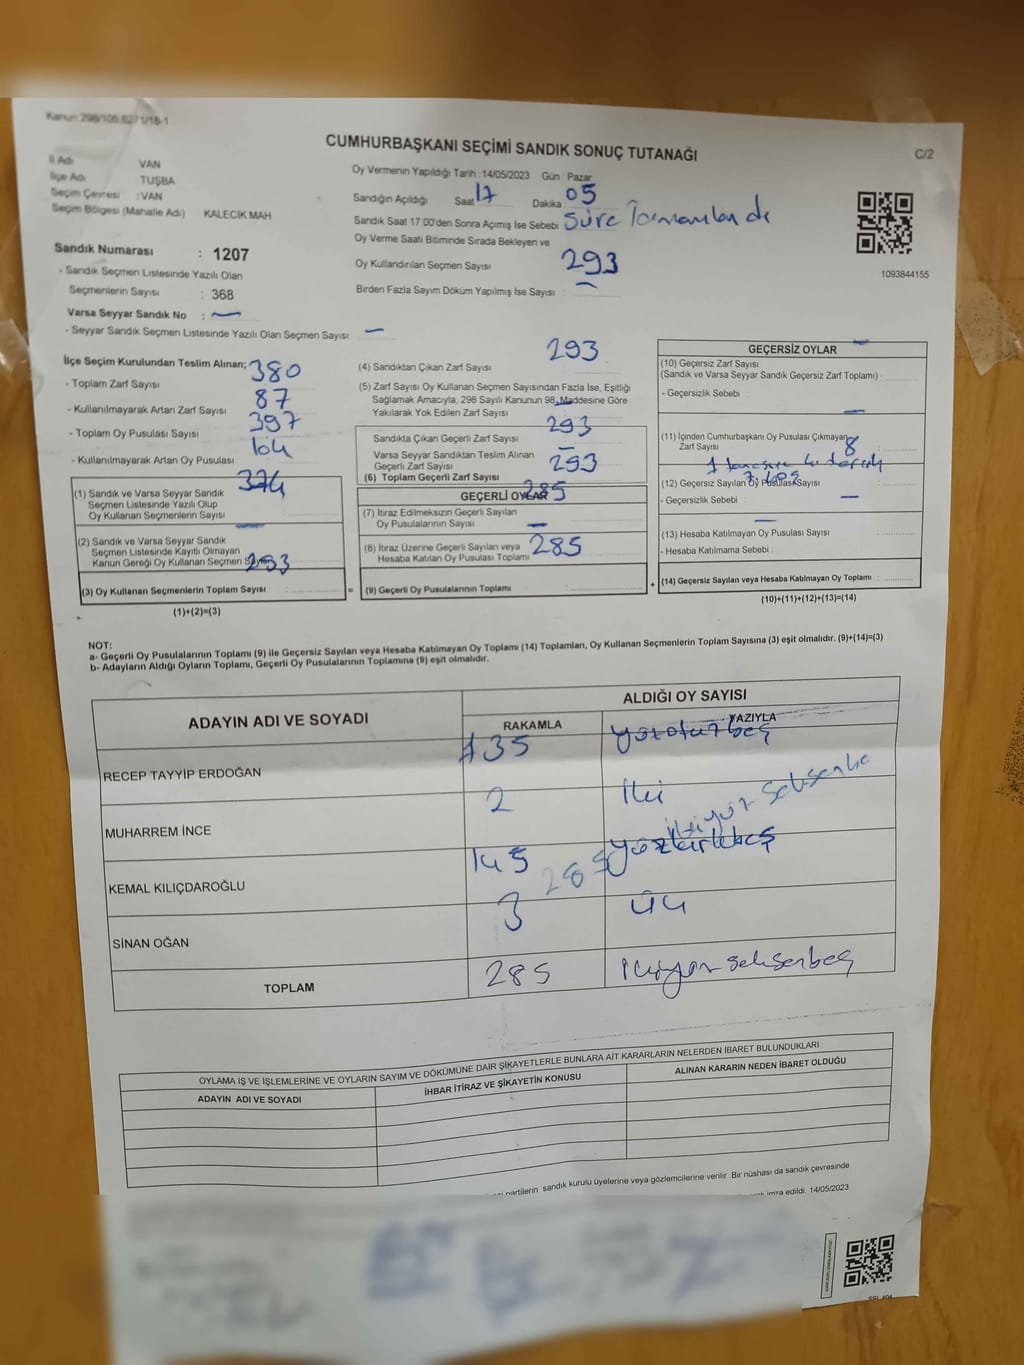 Kanun: 298/105,6271/18-1
CUMHURBAŞKANI SEÇİMİ SANDIK SONUÇ TUTANAĞI
C/2
İl Adı VAN
İlçe Adı TUŞBA
Seçim Çevresi : VAN
Seçim Bölgesi (Mahalle Adı) KALECIK MAH
Oy Vermenin Yapıldığı Tarih : 14/05/2023 Gün : Pazar
Sandığın Açıldığı Saat 17 Dakika 05
Sandık Saat 17.00'den Sonra Açımış İse Sebebi Süre
Oy Verme Saati Bitiminde Sırada Bekleyen ve
Oy Kullandırılan Seçmen Sayısı 293
Birden Fazla Sayım Döküm Yapılmış İse Sayısı : —
1093844155
Sandık Numarası : 1207
- Sandık Seçmen Listesinde Yazılı Olan
Seçmenlerin Sayısı : 368
Varsa Seyyar Sandık No : —
- Seyyar Sandık Seçmen Listesinde Yazılı Olan Seçmen Sayısı : —
İlçe Seçim Kurulundan Teslim Alınan;
- Toplam Zarf Sayısı 380
- Kullanılmayarak Artan Zarf Sayısı 87
- Toplam Oy Pusulası Sayısı 397
- Kullanılmayarak Artan Oy Pusulası 104
(1) Sandık ve Varsa Seyyar Sandık
Seçmen Listesinde Yazılı Olup
Oy Kullanan Seçmenlerin Sayısı
(2) Sandık ve Varsa Seyyar Sandık —
Seçmen Listesinde Kayıtlı Olmayan
Kanun Gereği Oy Kullanan Seçmen Sayısı 293
(3) Oy Kullanan Seçmenlerin Toplam Sayısı
(1)+(2)=(3)
(4) Sandıktan Çıkan Zarf Sayısı 293
(5) Zarf Sayısı Oy Kullanan Seçmen Sayısından Fazla İse, Eşitliği
Sağlamak Amacıyla, 298 Sayılı Kanunun 98. Maddesine Göre
Yakılarak Yok Edilen Zarf Sayısı —
Sandıkta Çıkan Geçerli Zarf Sayısı 293
Varsa Seyyar Sandıktan Teslim Alınan —
Geçerli Zarf Sayısı
(6) Toplam Geçerli Zarf Sayısı 293
GEÇERLİ OYLAR 285
(7) İtiraz Edilmeksizin Geçerli Sayılan
Oy Pusulalarının Sayısı
(8) İtiraz Üzerine Geçerli Sayılan veya —
Hesaba Katılan Oy Pusulası Toplamı 285
= (9) Geçerli Oy Pusulalarının Toplamı
GEÇERSİZ OYLAR
(10) Geçersiz Zarf Sayısı —
(Sandık ve Varsa Seyyar Sandık Geçersiz Zarf Toplamı) :
- Geçersizlik Sebebi :
(11) İçinden Cumhurbaşkanı Oy Pusulası Çıkmayan —
Zarf Sayısı 8
(12) Geçersiz Sayılan Oy Pusulası Sayısı
- Geçersizlik Sebebi : —
(13) Hesaba Katılmayan Oy Pusulası Sayısı —
- Hesaba Katılmama Sebebi :
+ (14) Geçersiz Sayılan veya Hesaba Katılmayan Oy Toplamı :
(10)+(11)+(12)+(13)=(14)
NOT:
a- Geçerli Oy Pusulalarının Toplamı (9) ile Geçersiz Sayılan veya Hesaba Katılmayan Oy Toplamı (14) Toplamları, Oy Kullanan Seçmenlerin Toplam Sayısına (3) eşit olmalıdır. (9)+(14)=(3)
b- Adayların Aldığı Oyların Toplamı, Geçerli Oy Pusulalarının Toplamına (9) eşit olmalıdır.
ADAYIN ADI VE SOYADI
ALDIĞI OY SAYISI
RAKAMLA YAZIYLA
RECEP TAYYİP ERDOĞAN 135 yüzotuzbeş
MUHARREM İNCE 2 iki
KEMAL KILIÇDAROĞLU 145 yüzkırkbeş
285 ikiyüz
SİNAN OĞAN 3 üç
TOPLAM 285 ikiyüz seksenbeş
OYLAMA İŞ VE İŞLEMLERİNE VE OYLARIN SAYIM VE DÖKÜMÜNE DAİR ŞİKAYETLERLE BUNLARA AİT KARARLARIN NELERDEN İBARET BULUNDUKLARI
ADAYIN ADI VE SOYADI İHBAR İTİRAZ VE ŞİKAYETİN KONUSU ALINAN KARARIN NEDEN İBARET OLDUĞU
partilerin sandık kurulu üyelerine veya gözlemcilerine verilir. Bir nüshası da sandık çevresinde
imza edildi. 14/05/2023